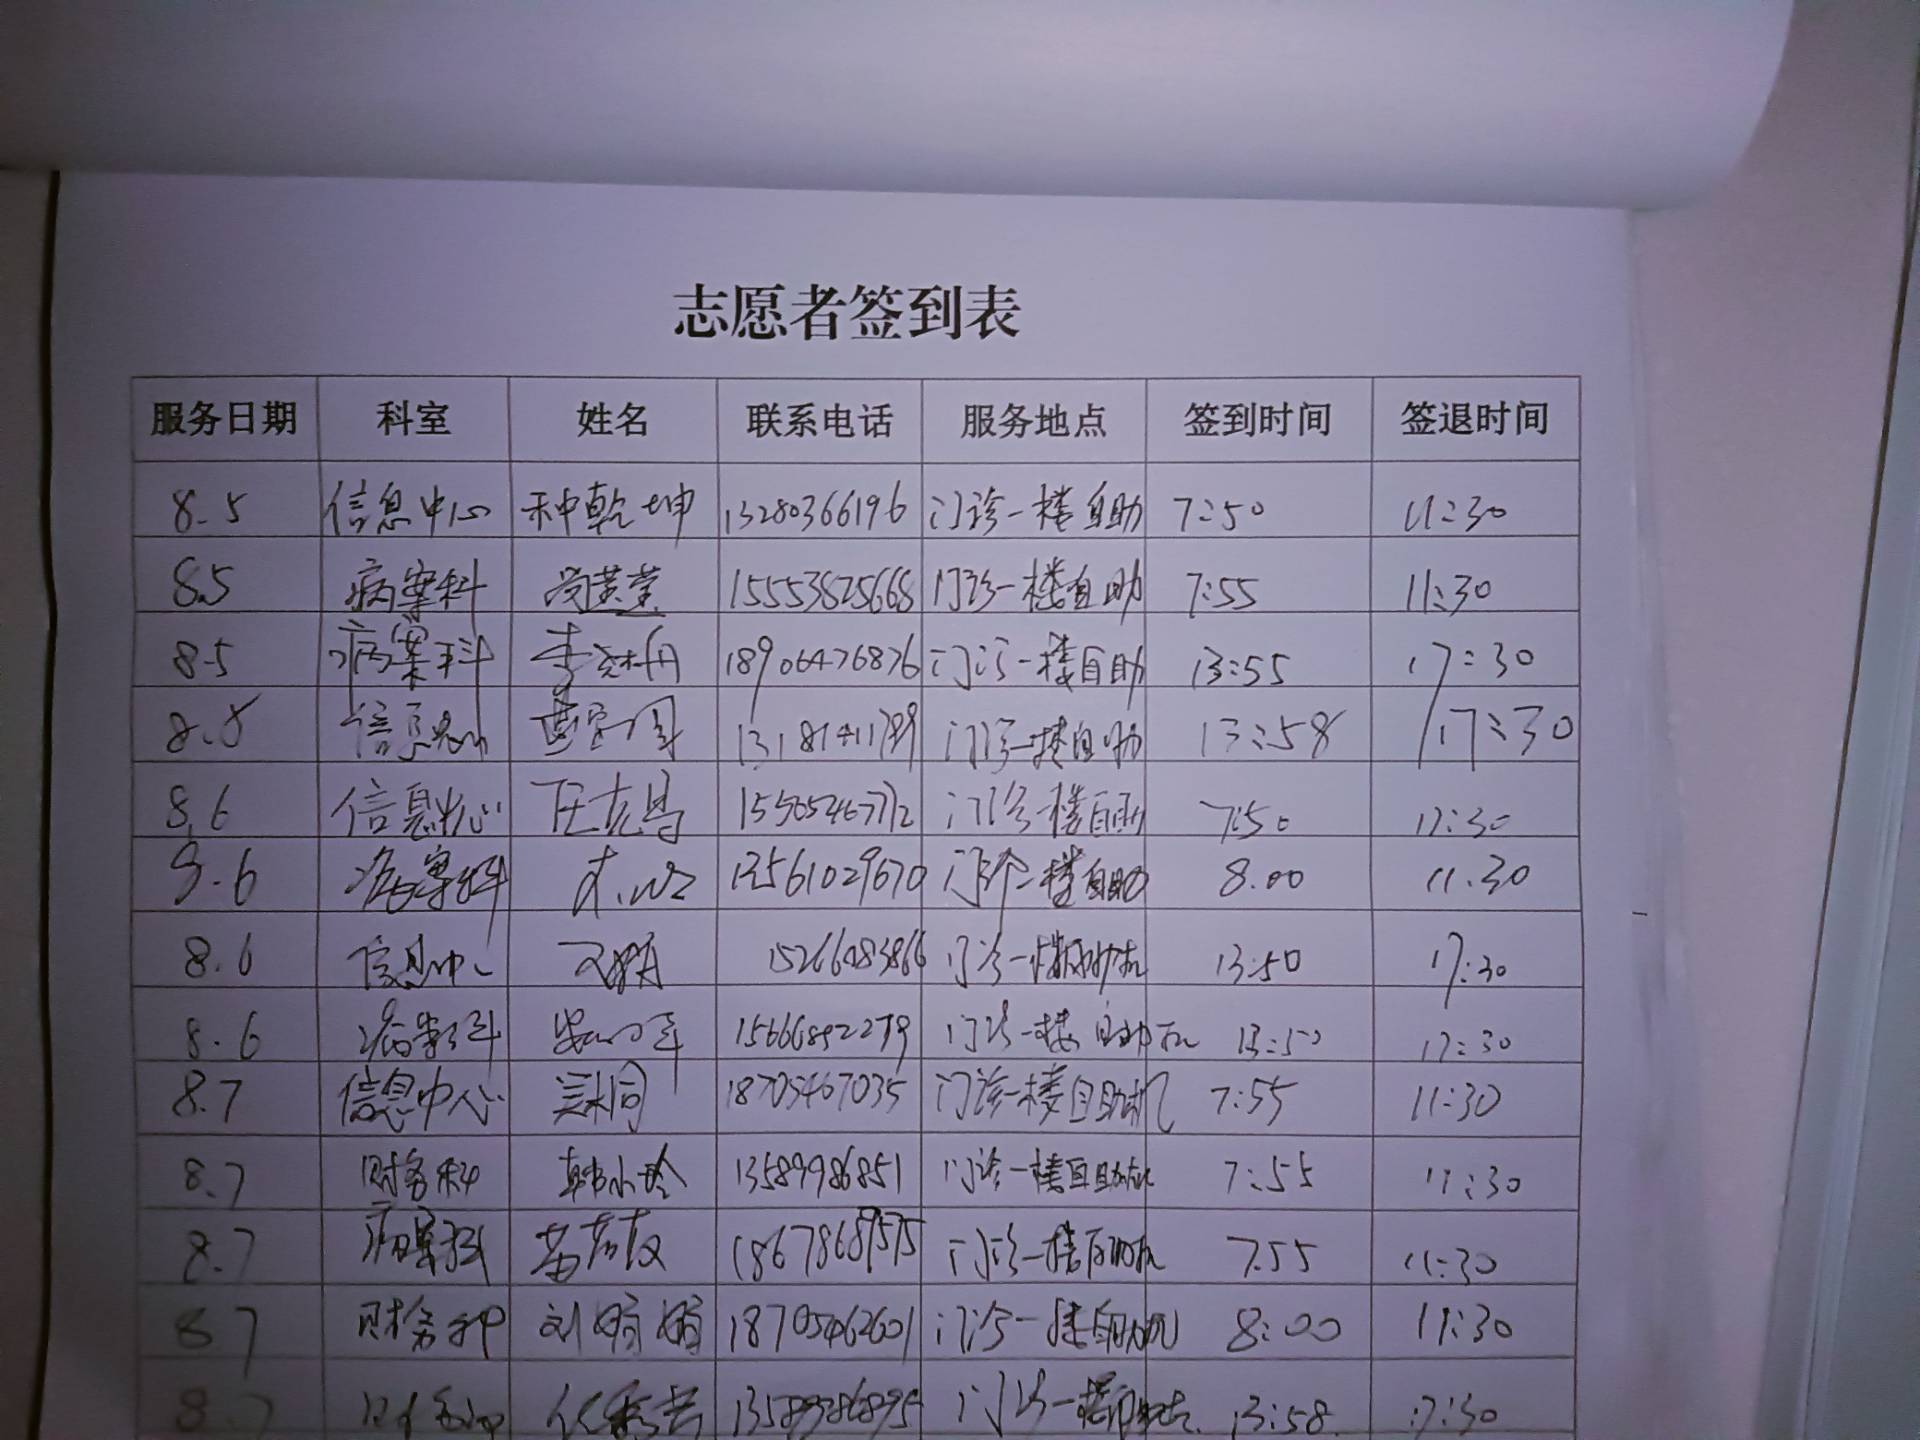 志愿者签到表
服务日期 科室 姓名 联系电话 服务地点 签到时间 签退时间
8.5 信息中心 种乾坤 13280366196 门诊一楼自助 7:50 11:30
8.5 病案科 15553825668 门诊一楼自助 7:55 11:30
8.5 病案科 18906476876 门诊一楼自助 13:55 17:30
8.5 门诊一楼自助 13:58 17:30
8.6 信息中心 门诊一楼自助 7:50 17:30
8.6 病案科 13561029670 门诊一楼自助 8.00 11.30
8.6 信息中心 门诊一楼自助机 13:50 17:30
8.6 病案科 门诊一楼自助机 13:50 17:30
8.7 信息中心 18705467035 门诊一楼自助机 7:55 11:30
8.7 财务科 韩小玲 13589986851 门诊一楼自助机 7:55 11:30
8.7 病案科 门诊一楼自助机 7.55 11:30
8.7 财务科 18705462601 门诊一楼自助机 8:00 11:30
8.7 门诊一楼自助机 13:58 17:30